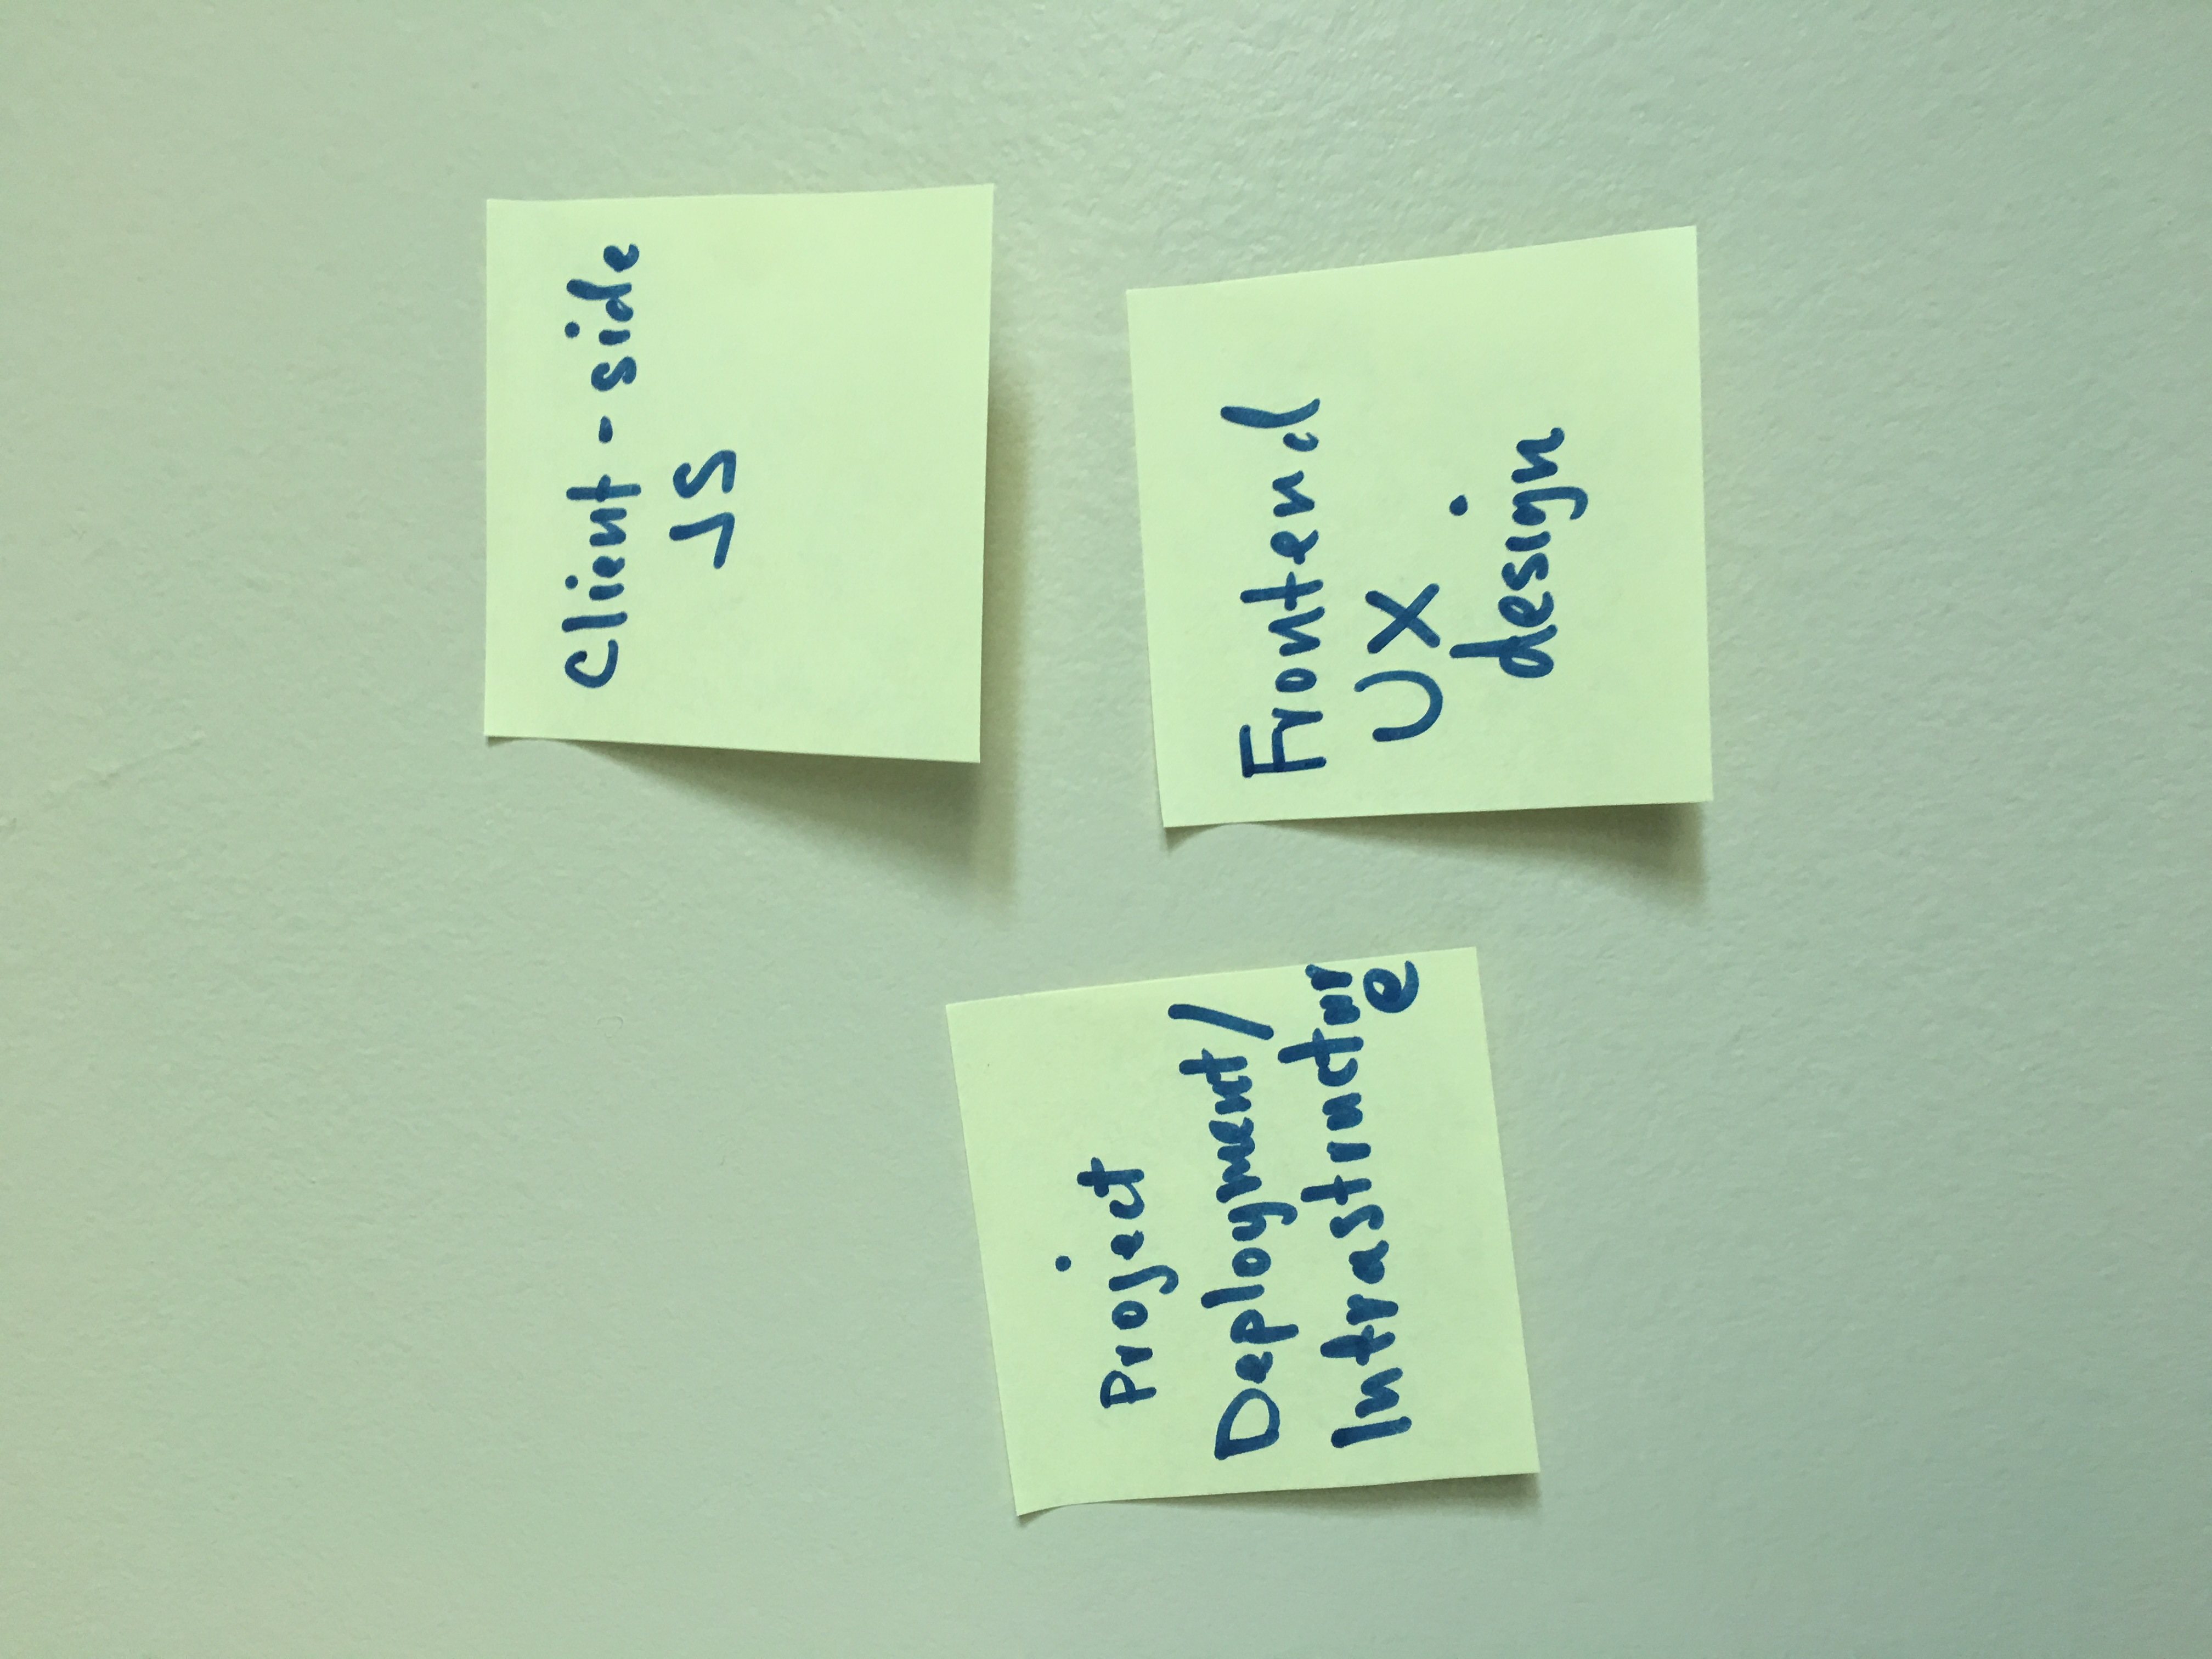 Client-side
JS
Project
Deployment/
Infrastructur
e
Frontend
UX
design